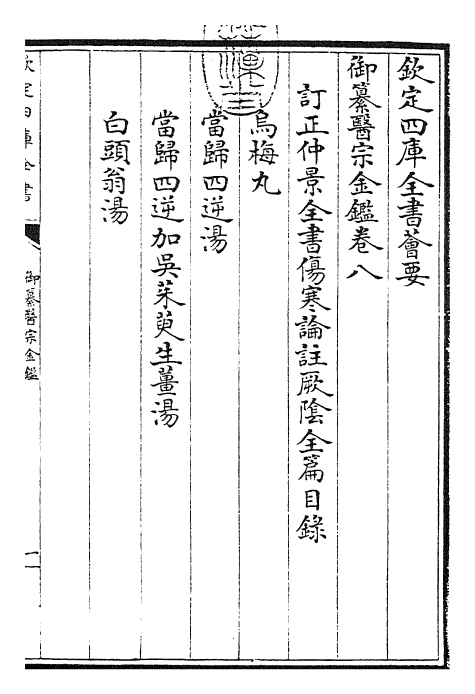 欽定四庫全書薈要
御纂醫宗金鑑卷八
訂正仲景全書傷寒論註厥陰全篇目錄
烏梅丸
當歸四逆湯
當歸四逆加吳茱萸生薑湯
白頭翁湯
欽定四庫全書
御纂醫宗金鑑
一